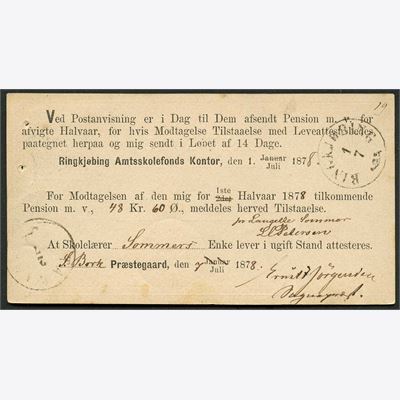 19
Ved Postanvisning er i Dag til Dem afsendt Pension m. v. for
afvigte Halvaar, for hvis Modtagelse Tilstaaelse med Leveattest bedes
paategnet herpaa og mig sendt i Løbet af 14 Dage.
Ringkjøbing Amtsskolefonds Kontor, den 1. Januar Juli 1878
RINGKJØBING
1
7
For Modtagelsen af den mig for 1ste 2det Halvaar 1878 tilkommende
Pension m. v., 48 Kr. 60 Ø., meddeles herved Tilstaaelse.
Sommer
Petersen
At Skolelærer Sommers Enke lever i ugift Stand attesteres.
Bork Præstegaard, den 7 Januar Juli 1878.
Ernst Jørgensen
Sognepræst